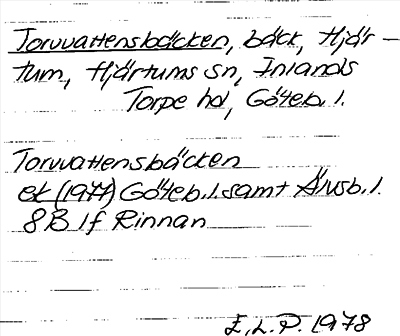 Torvvattensbäcken, bäck, Hjär-
tum, Hjärtums sn, Inlands
Torpe hd, Göteb. l.
Torvvattensbäcken
ek (1977) Göteb. l. samt Älvsb. l.
8B 1f Rinnan
E.L.P. 1978